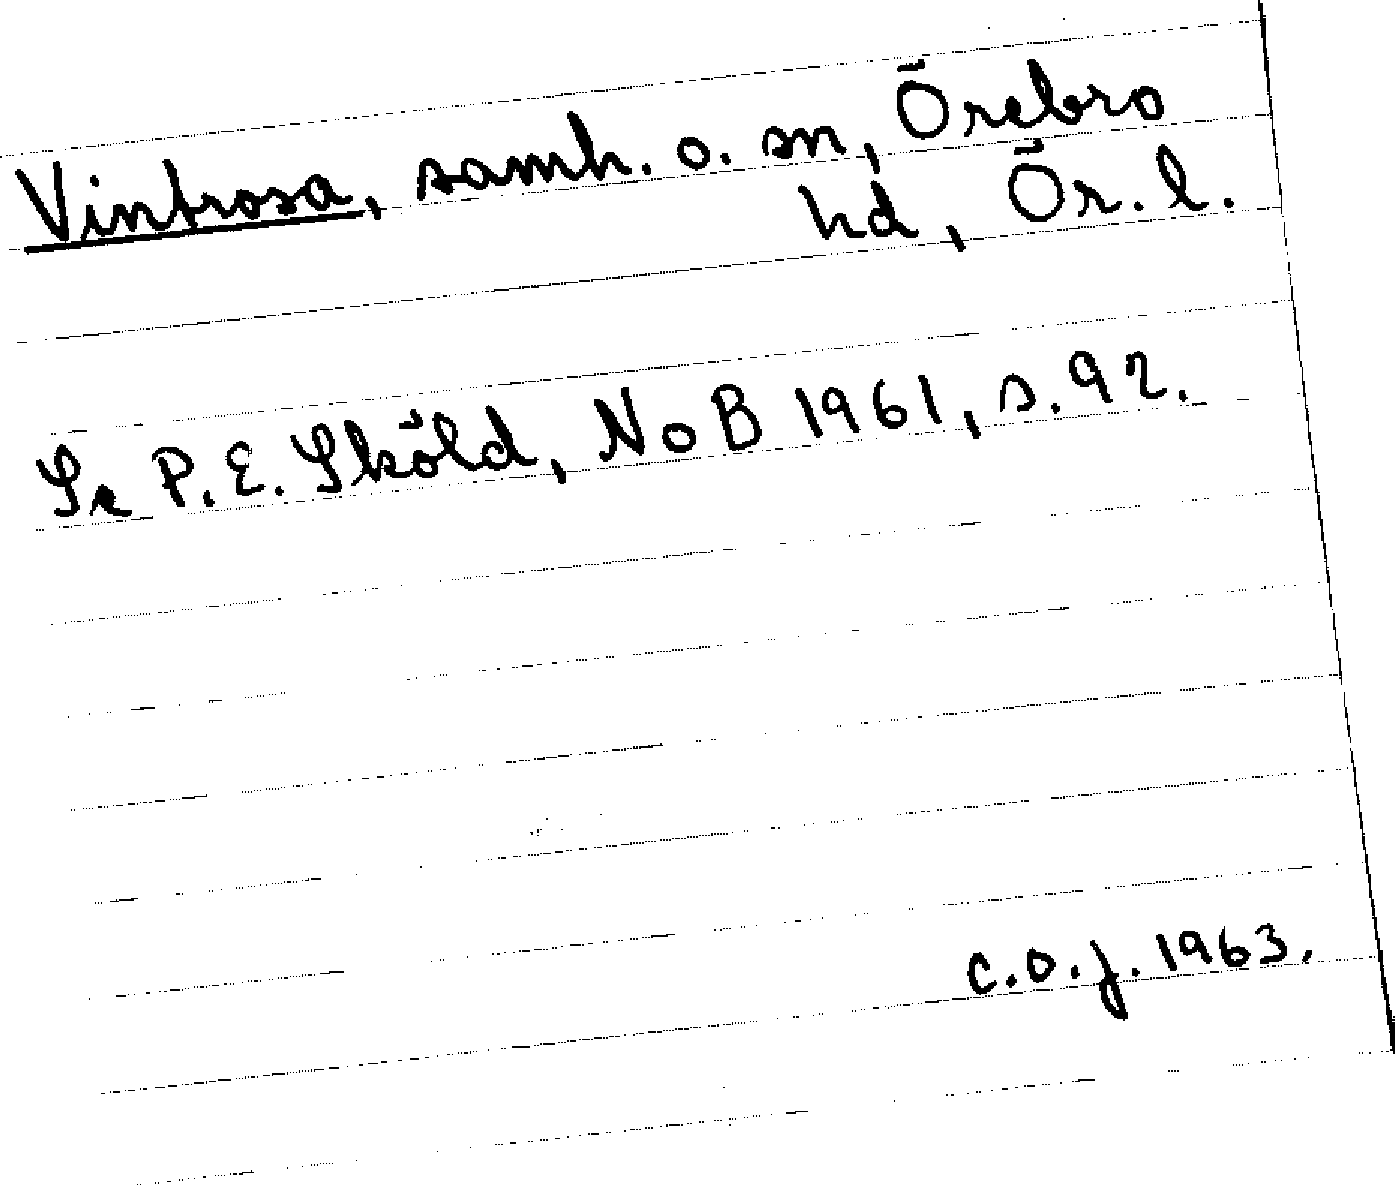 Vintrosa, samh. o. sn, Örebro
hd, Ör. l.
Se P. E. Sköld, NoB 1961, s. 92.
C.O.J. 1963.